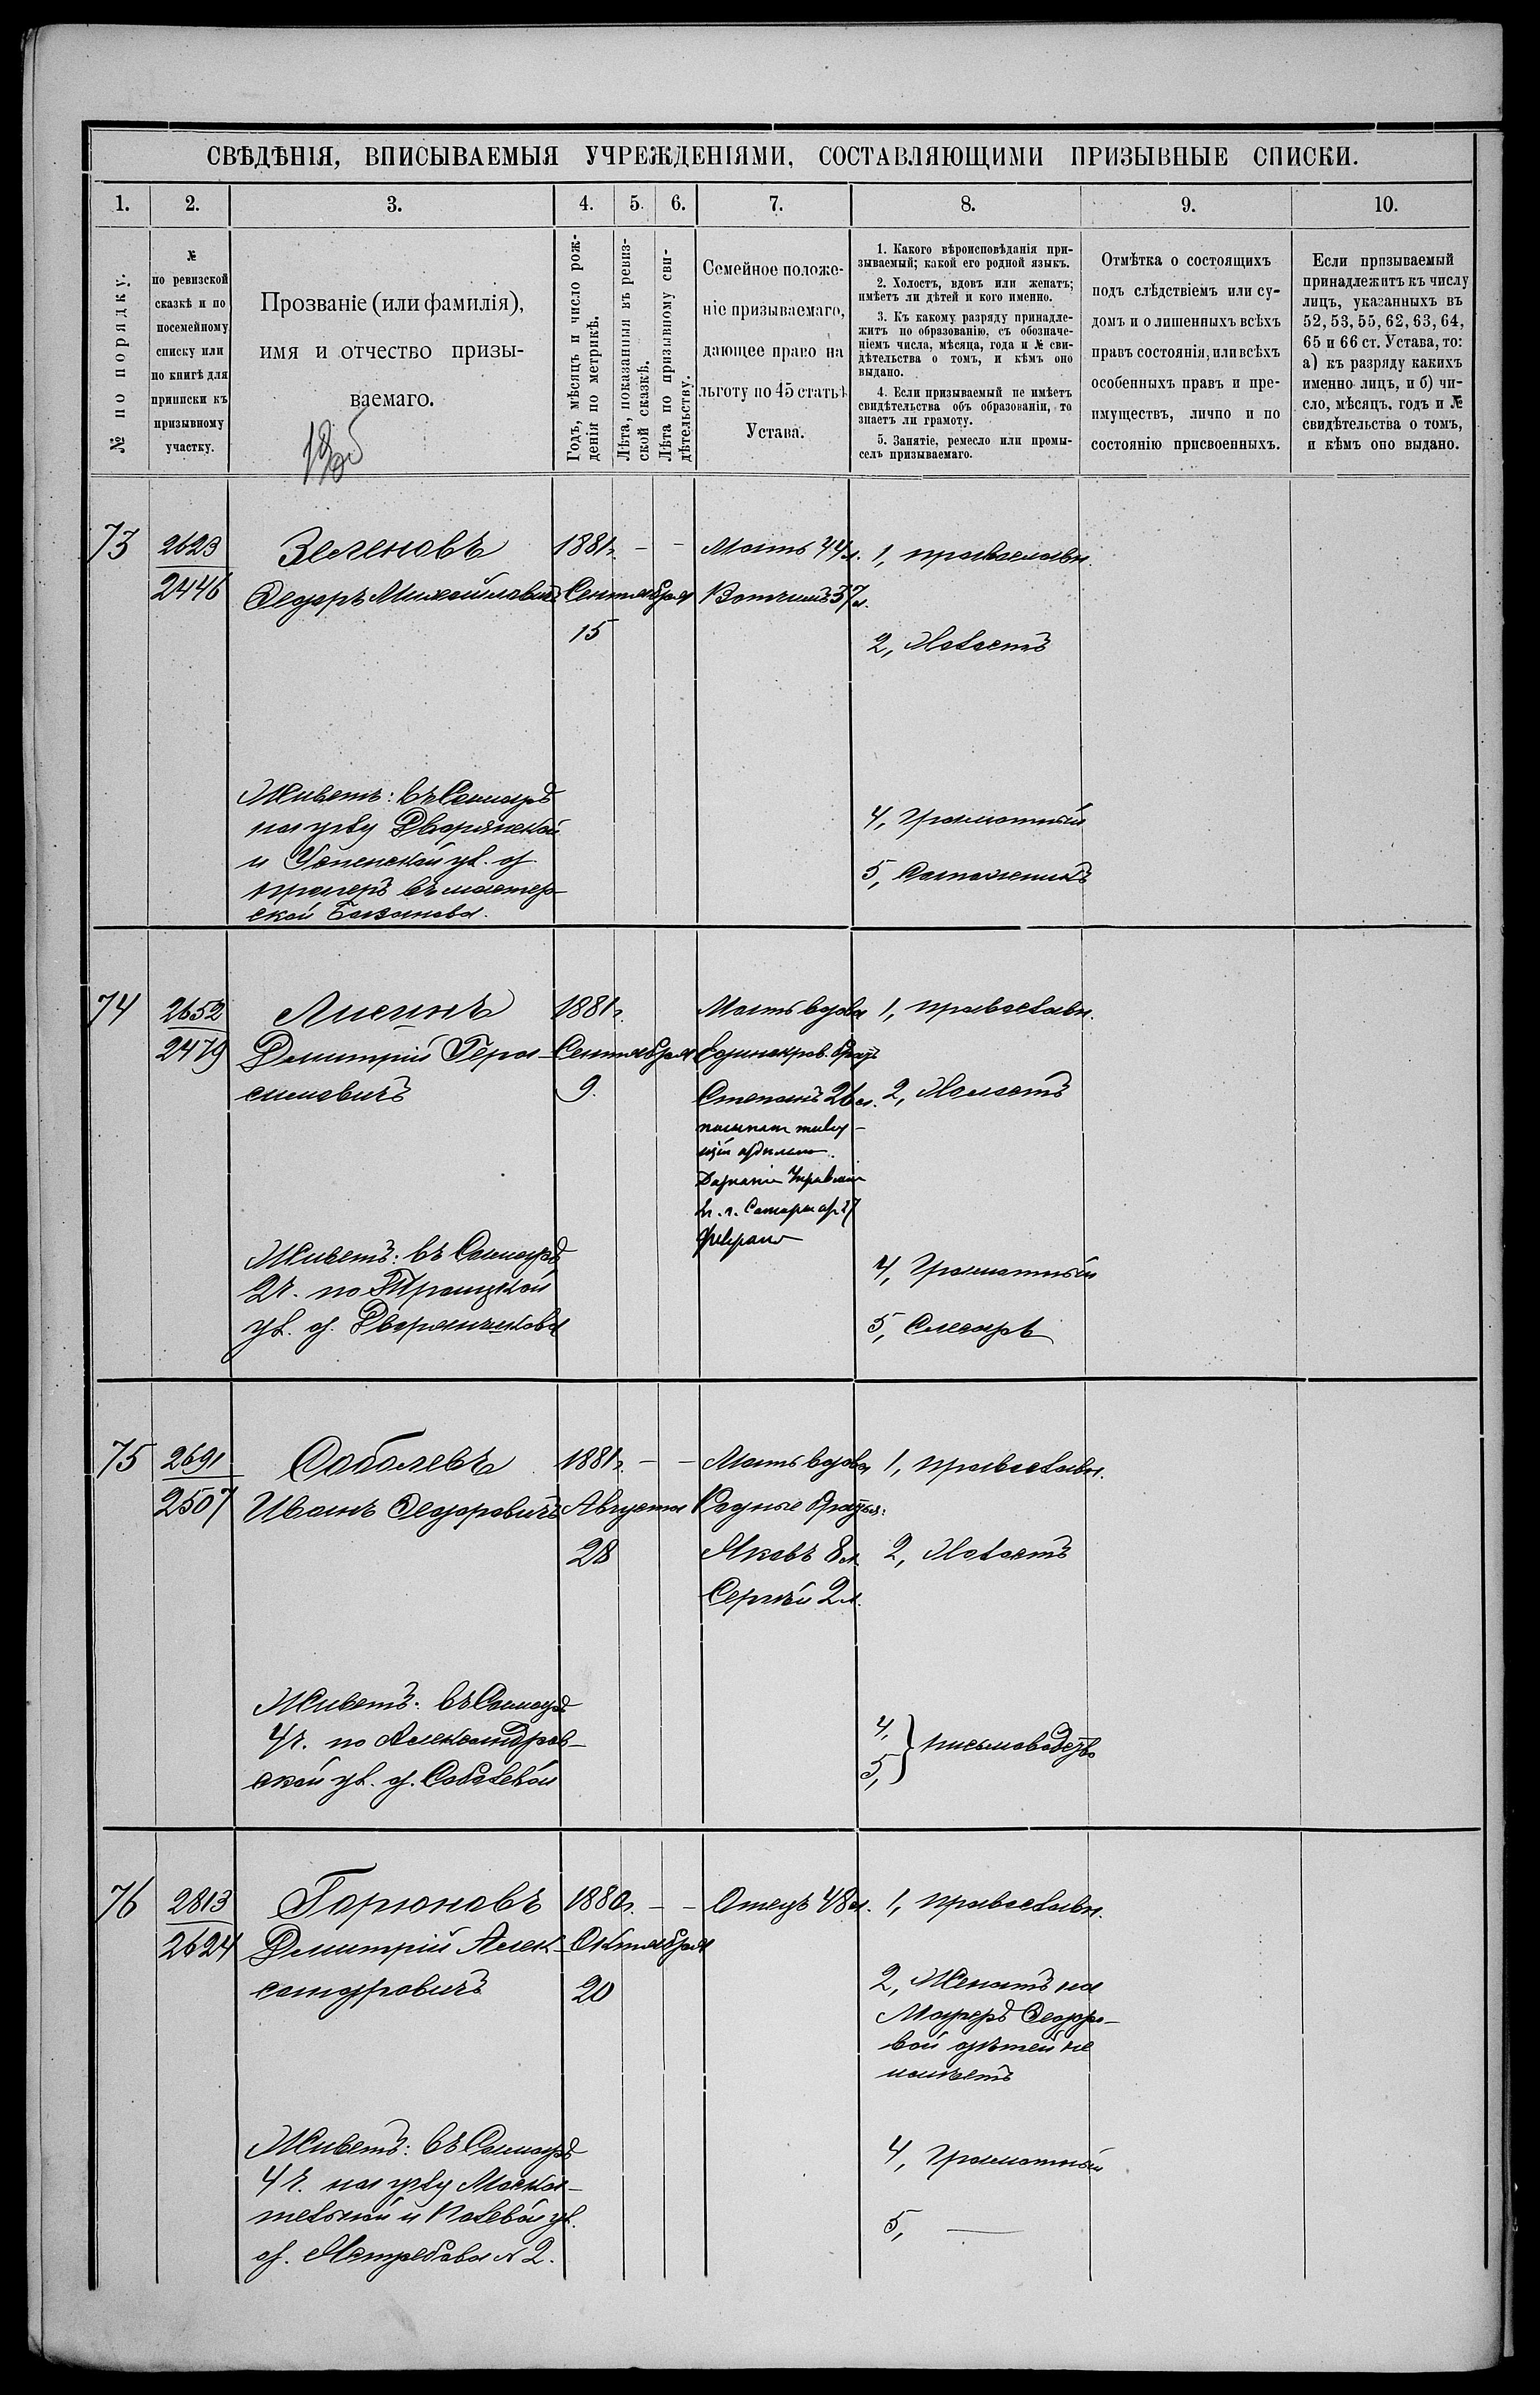 СВѢДѢНІЯ, ВПИСЫВАЕМЫЯ УЧРЕЖДЕНІЯМИ, СОСТАВЛЯЮЩИМИ ПРИЗЫВНЫЕ СПИСКИ.
1. 2. 3. 4. 5. 6. 7. 8. 9. 10.
№ по порядку.
№
по ревизской
сказкѣ и по
посемейному
списку или
по книгѣ для
приписки къ
призывному
участку.
Прозваніе (или фамилія),
имя и отчество призы-
ваемаго.
Годъ, мѣсяцъ и число рож-
денія по метрикѣ.
Лѣта, показанныя въ ревиз-
ской сказкѣ.
Лѣта по призывному сви-
дѣтельству.
Семейное положе-
ніе призываемаго,
дающее право на
льготу по 45 статьѣ
Устава.
1. Какого вѣроисповѣданія при-
зываемый; какой его родной языкъ.
2. Холостъ, вдовъ или женатъ;
имѣетъ ли дѣтей и кого именно.
3. Къ какому разряду принадле-
житъ по образованію, съ обозначе-
ніемъ числа, мѣсяца, года и № сви-
дѣтельства о томъ, и кѣмъ оно
выдано.
4. Если призываемый не имѣетъ
свидѣтельства объ образованіи, то
знаетъ ли грамоту.
5. Занятіе, ремесло или промы-
селъ призываемаго.
Отмѣтка о состоящихъ
подъ слѣдствіемъ или су-
домъ и о лишенныхъ всѣхъ
правъ состоянія, или всѣхъ
особенныхъ правъ и пре-
имуществъ, лично и по
состоянію присвоенныхъ.
Если призываемый
принадлежитъ къ числу
лицъ, указанныхъ въ
52, 53, 55, 62, 63, 64,
65 и 66 ст. Устава, то:
а) къ разряду какихъ
именно лицъ, и б) чи-
сло, мѣсяцъ, годъ и №
свидѣтельства о томъ,
и кѣмъ оно выдано.
73
2623
2446
Зеленовъ
Ѳедоръ Михайловичъ
Живетъ: въ Самарѣ
на углу Дворянской
и Успенской ул. д.
въ мастер-
ской Базанова.
1881г. – –
Сентября
15
Мать 44л.
Вотчимъ 37л.
1, православн.
2, Холостъ
4, Грамотный
5, Сапожникъ
74
2652
2479
Лисинъ
Димитрій Гера-
симовичъ
Живетъ: въ Самарѣ
2ч. по Троицкой
ул. д. Дворянчикова
1881г.
Сентября
9.
Мать вдова
Единокров. братъ
Степанъ 26л.
1, православн.
2, Холостъ
4, Грамотный
5, Слесарь
75
2691
2507
Соболевъ
Иванъ Ѳедоровичъ
Живетъ: въ Самарѣ
4ч. по Александров-
ской ул. д. Соболевой
1881г. – –
Августа
28
Мать вдова
Родные братья:
Яковъ 8л.
Сергѣй 2л.
1, православн.
2, Холостъ
4,
5, } письмоводство
76
2813
2624
Горюновъ
Димитрій Алек-
сандровичъ
Живетъ: въ Самарѣ
4ч. на углу Москa-
тельной и Полевой ул.
д. Ястребова № 2.
1880г. – –
Октября
20
Отецъ 48л.
1, православн.
2, Женатъ на
Ѳедоро-
вой дѣтей не
имѣетъ
4, Грамотный
5, —